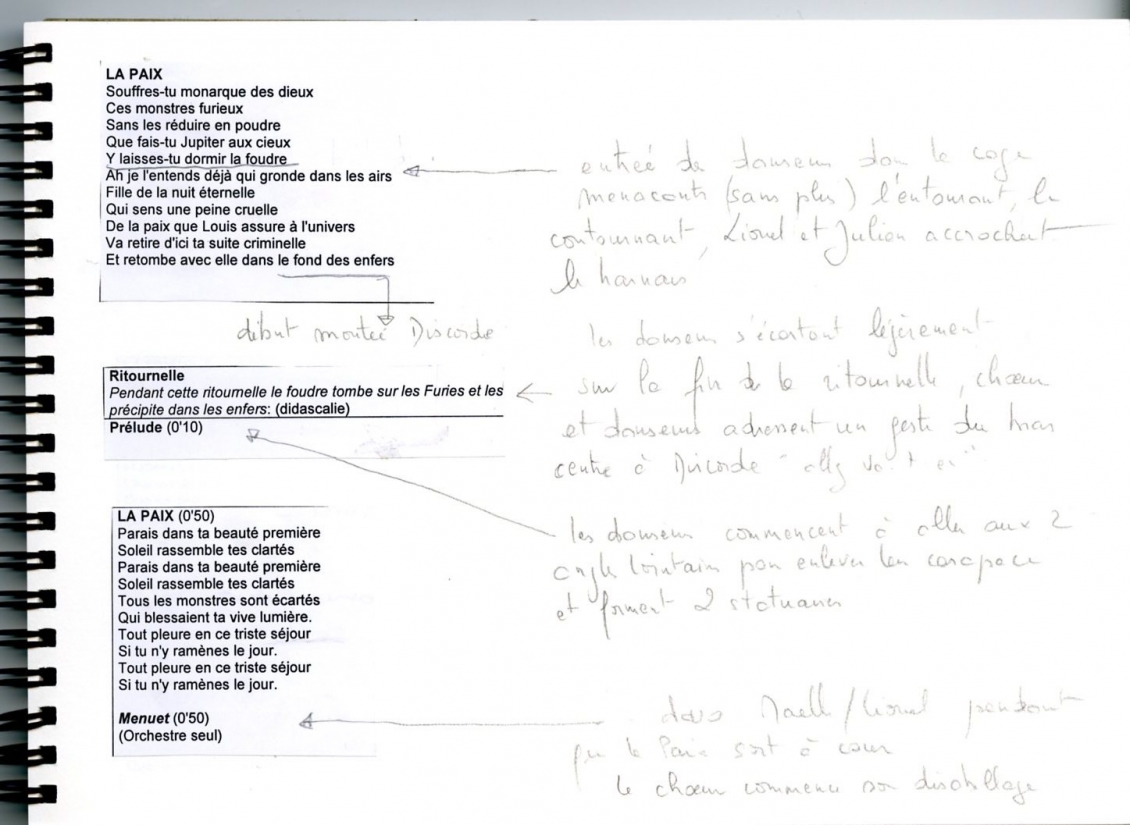 LA PAIX
Souffres-tu monarque des dieux
Ces monstres furieux
Sans les réduire en poudre
Que fais-tu Jupiter aux cieux
Y laisses-tu dormir la foudre
Ah je l'entends déjà qui gronde dans les airs
Fille de la nuit éternelle
Qui sens une peine cruelle
De la paix que Louis assure à l'univers
Va retire d'ici ta suite criminelle
Et retombe avec elle dans le fond des enfers
entreé de danseurs dans la cage
menaçants (sans plus) l'entourant, la
contournant, Lionel et Julien accrochent
le harnais
début monteé Discorde
les danseurs s'écartant légèrement
sur la fin de la ritournelle, chœur
et danseurs adressent un geste du bras
centre à Discorde
Ritournelle
Pendant cette ritournelle le foudre tombe sur les Furies et les
précipite dans les enfers: (didascalie)
Prélude (0'10)
les danseurs commencent à aller aux 2
angles lointain pour enlever leur carapace
et forment 2 statuaires
LA PAIX (0'50)
Parais dans ta beauté première
Soleil rassemble tes clartés
Parais dans ta beauté première
Soleil rassemble tes clartés
Tous les monstres sont écartés
Qui blessaient ta vive lumière.
Tout pleure en ce triste séjour
Si tu n'y ramènes le jour.
Tout pleure en ce triste séjour
Si tu n'y ramènes le jour.
Menuet (0'50)
(Orchestre seul)
/Lionel pendant
que la Paix sort à cour
le chœur commence son déshabillage